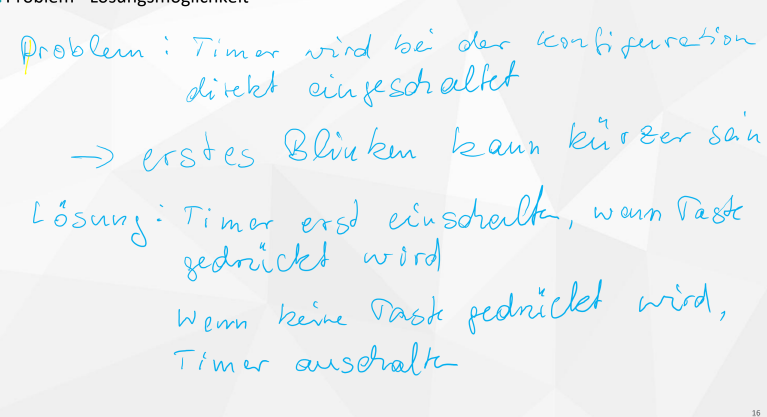 Problem - Lösungsmöglichkeit
Problem: Timer wird bei der Konfiguration
direkt eingeschaltet
→ erstes Blinken kann kürzer sein
Lösung: Timer erst einschalten, wenn Taste
gedrückt wird
Wenn keine Taste gedrückt wird,
Timer ausschalten
16